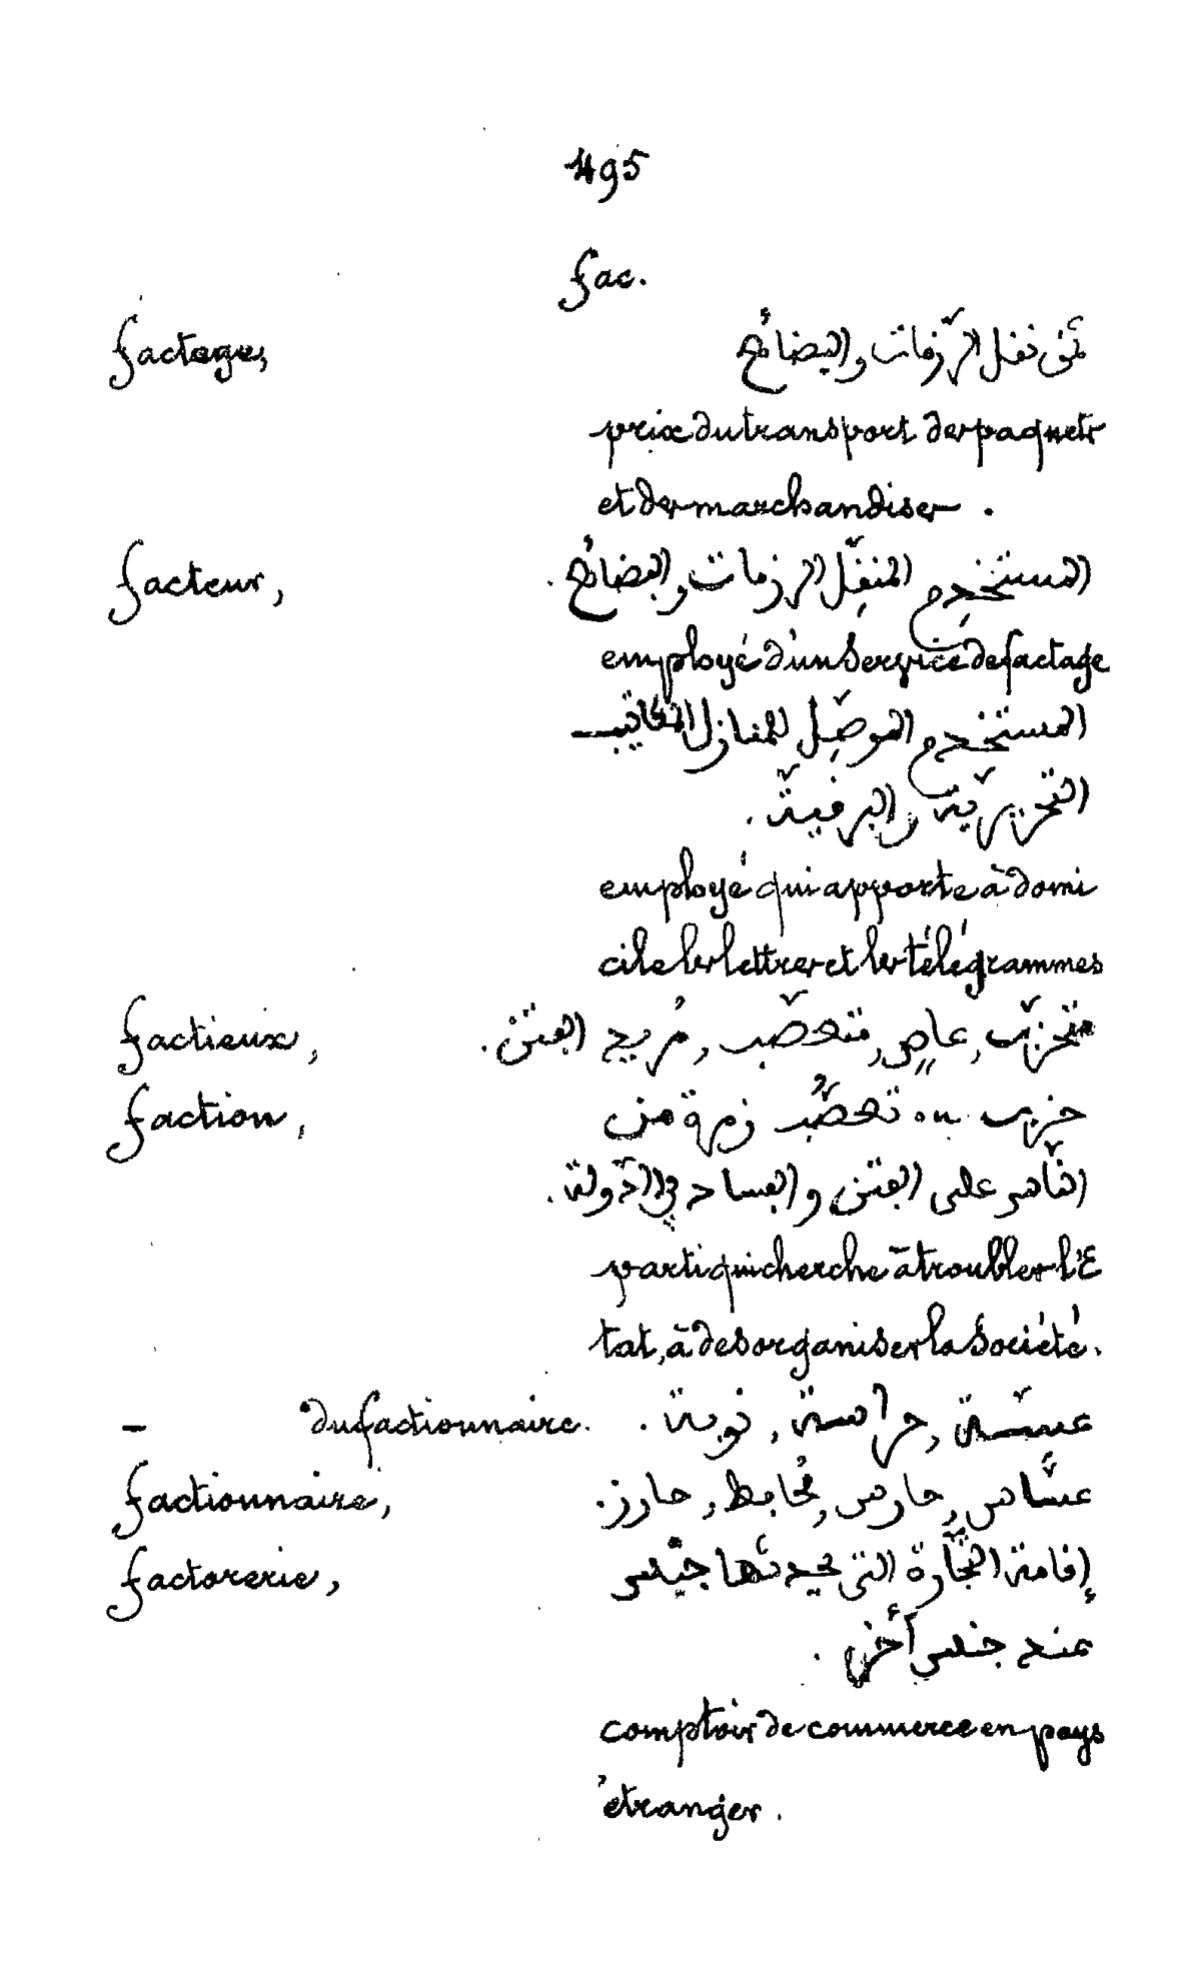 495
fac.
factage, ثمن نقل الرّزمات والبضائع
prix du transport des paquets
et des marchandises.
facteur, المستخدم لنقل الرزمات والبضائع.
employé d'un service de factage
المستخدم الموصّل للمنازل المكاتيب
التحريريّة والبرقيّة.
employé qui apporte à domi
cile les lettres et les télégrammes
factieux, متحزّب, عاصٍ, متعصّب, مُريج الفتن.
faction, حزب ou تعصُّب زمرة من
النّاس على الفتن والفساد في الدّولة.
parti qui cherche à troubler l'E
tat, à desorganiser la société.
— du factionnaire. عسّة, حراسة, نوبة.
factionnaire, عسّاس, حارس, مُحافظ, حارز.
factorerie, إقامة التّجارة التي يحدثها جنس
عند جنس أخر.
comptoir de commerce en pays
étranger.